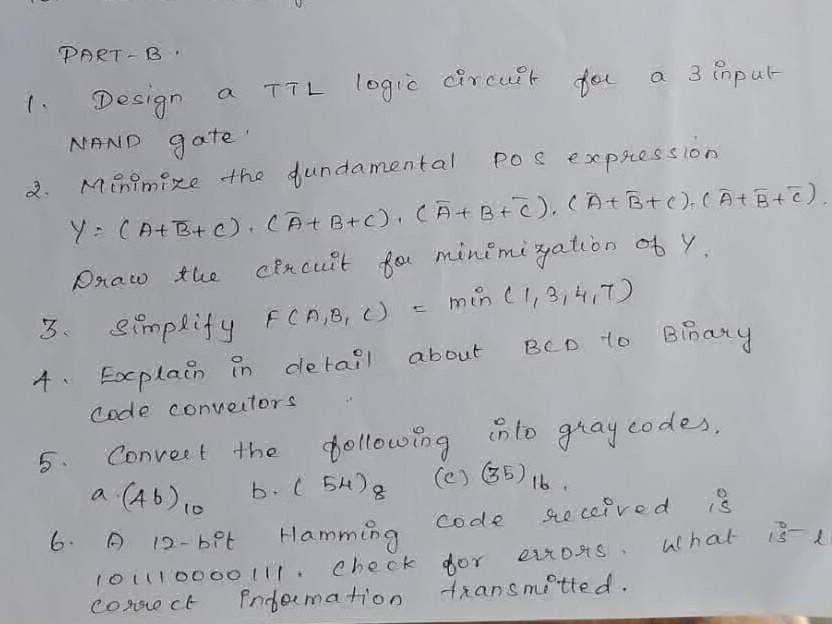 PART-B.
1. Design a TTL logic circuit for a 3 input
NAND gate.
2. Minimize the fundamental POS expression
Y = (A+B̅+C). (A̅+B+C). (A̅+B+C̅). (A̅+B̅+C). (A̅+B̅+C̅).
Draw the circuit for minimization of Y.
3. Simplify F(A,B,C) = min (1,3,4,7)
4. Explain in detail about BCD to Binary
code convertors
5. Convert the following into gray codes.
a.(46)₁₀ b.(54)₈ (c) (35)₁₆.
6. A 12-bit Hamming code received is
101110000111. Check for errors. What is
correct information transmitted.